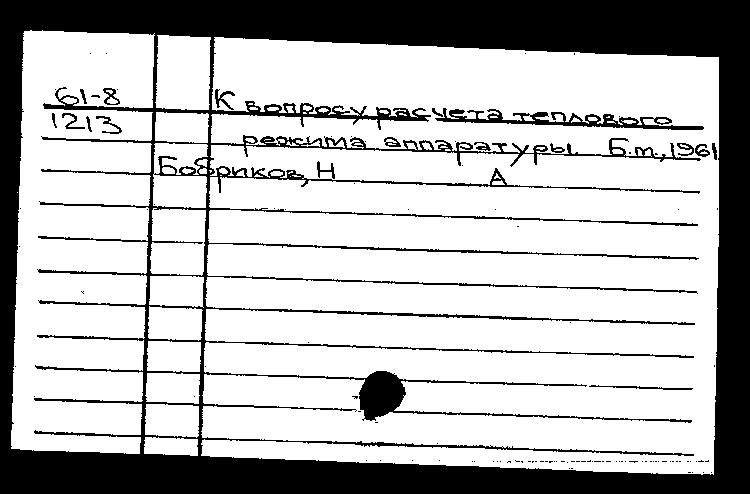 61-8 К вопросу расчета теплового
1213 режима аппаратуры. Б.м., 1961
Бобриков, Н А